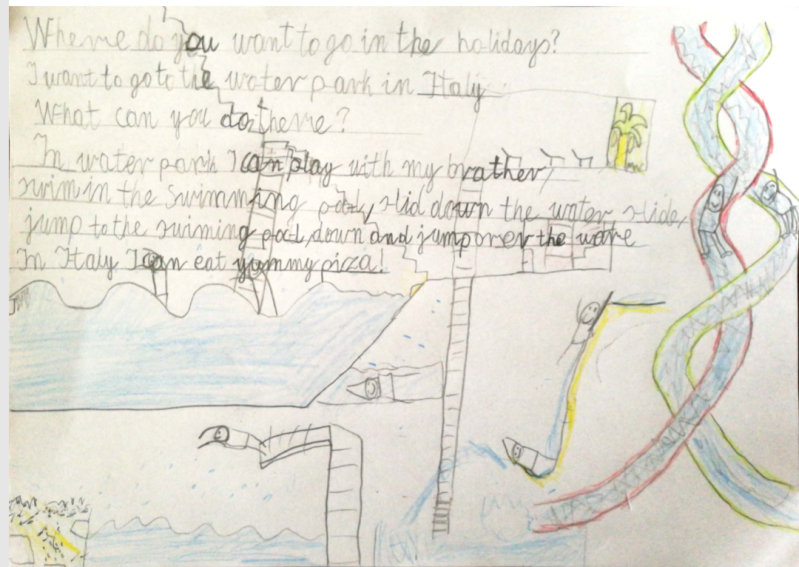 Wheme do you want to go in the holidays?
I want to go to the water park in Italy
What can you do theme?
In water park I can play with my brather,
swim in the swimming poal, slid down the water slide,
jump to the swiming poal, down and jump over the wave
In Italy I can eat yummy pizza!